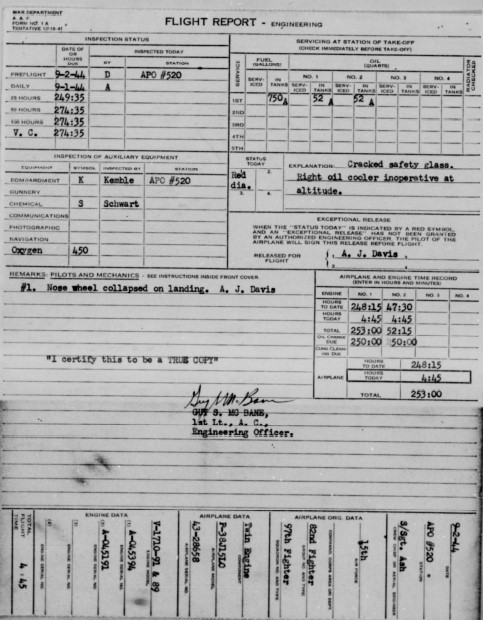 WAR DEPARTMENT
A. A. F.
FORM NO. 1 A
TENTATIVE 12-15-41
FLIGHT REPORT - ENGINEERING
INSPECTION STATUS
DATE OF OR HOURS DUE
INSPECTED TODAY
BY
STATION
PREFLIGHT 9-2-44 D APO #520
DAILY 9-1-44 A
25 HOURS 249:35
50 HOURS 274:35
100 HOURS 274:35
V. C. 274:35
SERVICING AT STATION OF TAKE-OFF
(CHECK IMMEDIATELY BEFORE TAKE-OFF)
SERVICE
FUEL (GALLONS)
OIL (QUARTS)
RADIATOR CHECKED
NO. 1 NO. 2 NO. 3 NO. 4
SERVICED IN TANKS SERVICED IN TANKS SERVICED IN TANKS SERVICED IN TANKS SERVICED IN TANKS
1ST 750 A 52 A 52 A
2ND
3RD
4TH
5TH
INSPECTION OF AUXILIARY EQUIPMENT
EQUIPMENT SYMBOL INSPECTED BY STATION
BOMBARDMENT K Kemble APO #520
GUNNERY
CHEMICAL S Schwart
COMMUNICATIONS
PHOTOGRAPHIC
NAVIGATION
Oxygen 450
STATUS TODAY
Red dia.
2.
3. 4.
EXPLANATION: Cracked safety glass.
Right oil cooler inoperative at
altitude.
EXCEPTIONAL RELEASE
WHEN THE "STATUS TODAY" IS INDICATED BY A RED SYMBOL,
AND AN "EXCEPTIONAL RELEASE" HAS NOT BEEN GRANTED
BY AN AUTHORIZED ENGINEERING OFFICER, THE PILOT OF THE
AIRPLANE WILL SIGN THIS RELEASE BEFORE FLIGHT.
RELEASED FOR FLIGHT
1. A. J. Davis
2
REMARKS: PILOTS AND MECHANICS - SEE INSTRUCTIONS INSIDE FRONT COVER
#1. Nose wheel collapsed on landing. A. J. Davis
AIRPLANE AND ENGINE TIME RECORD
(ENTER IN HOURS AND MINUTES)
ENGINE NO. 1 NO. 2 NO. 3 NO. 4
HOURS TO DATE 248:15 47:30
HOURS TODAY 4:45 4:45
TOTAL 253:00 52:15
OIL CHANGE DUE 250:00 50:00
CUNO CLEANING DUE
AIRPLANE
HOURS TO DATE 248:15
HOURS TODAY 4:45
TOTAL 253:00
"I certify this to be a TRUE COPY"
Guy S. Mc Bane
GUY S. MC BANE,
1st Lt., A. C.,
Engineering Officer.
TOTAL FLIGHT TIME 4:45
ENGINE DATA
V-1710-91 & 89
ENGINE MODEL
A-045394
ENGINE SERIAL NO.
A-045191
ENGINE SERIAL NO.
ENGINE SERIAL NO.
ENGINE SERIAL NO.
AIRPLANE DATA
Twin Engine
P-38J15LO
AIRPLANE MODEL
43-28658
AIRPLANE SERIAL NO.
AIRPLANE ORG. DATA
15th
AIR FORCE
82nd Fighter
GROUP NO. AND TYPE
97th Fighter
SQUADRON NO. AND TYPE
9-2-44
DATE
APO #520
STATION
S/Sgt. Ash